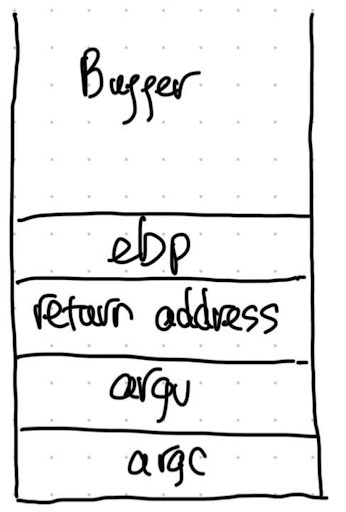 Buffer
ebp
return address
argv
argc